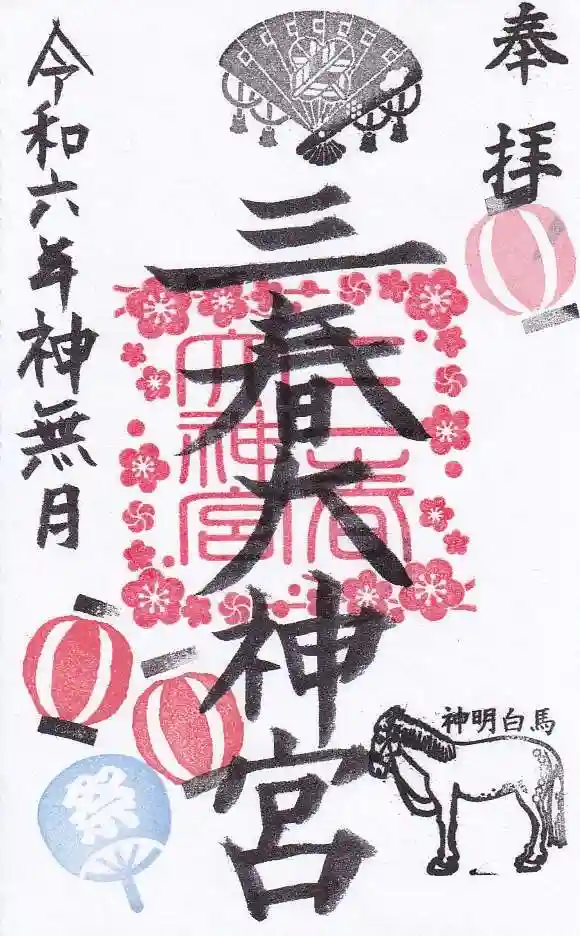 奉拝
三春大神宮
三春
大神宮
令和六年神無月
祭
神明白馬